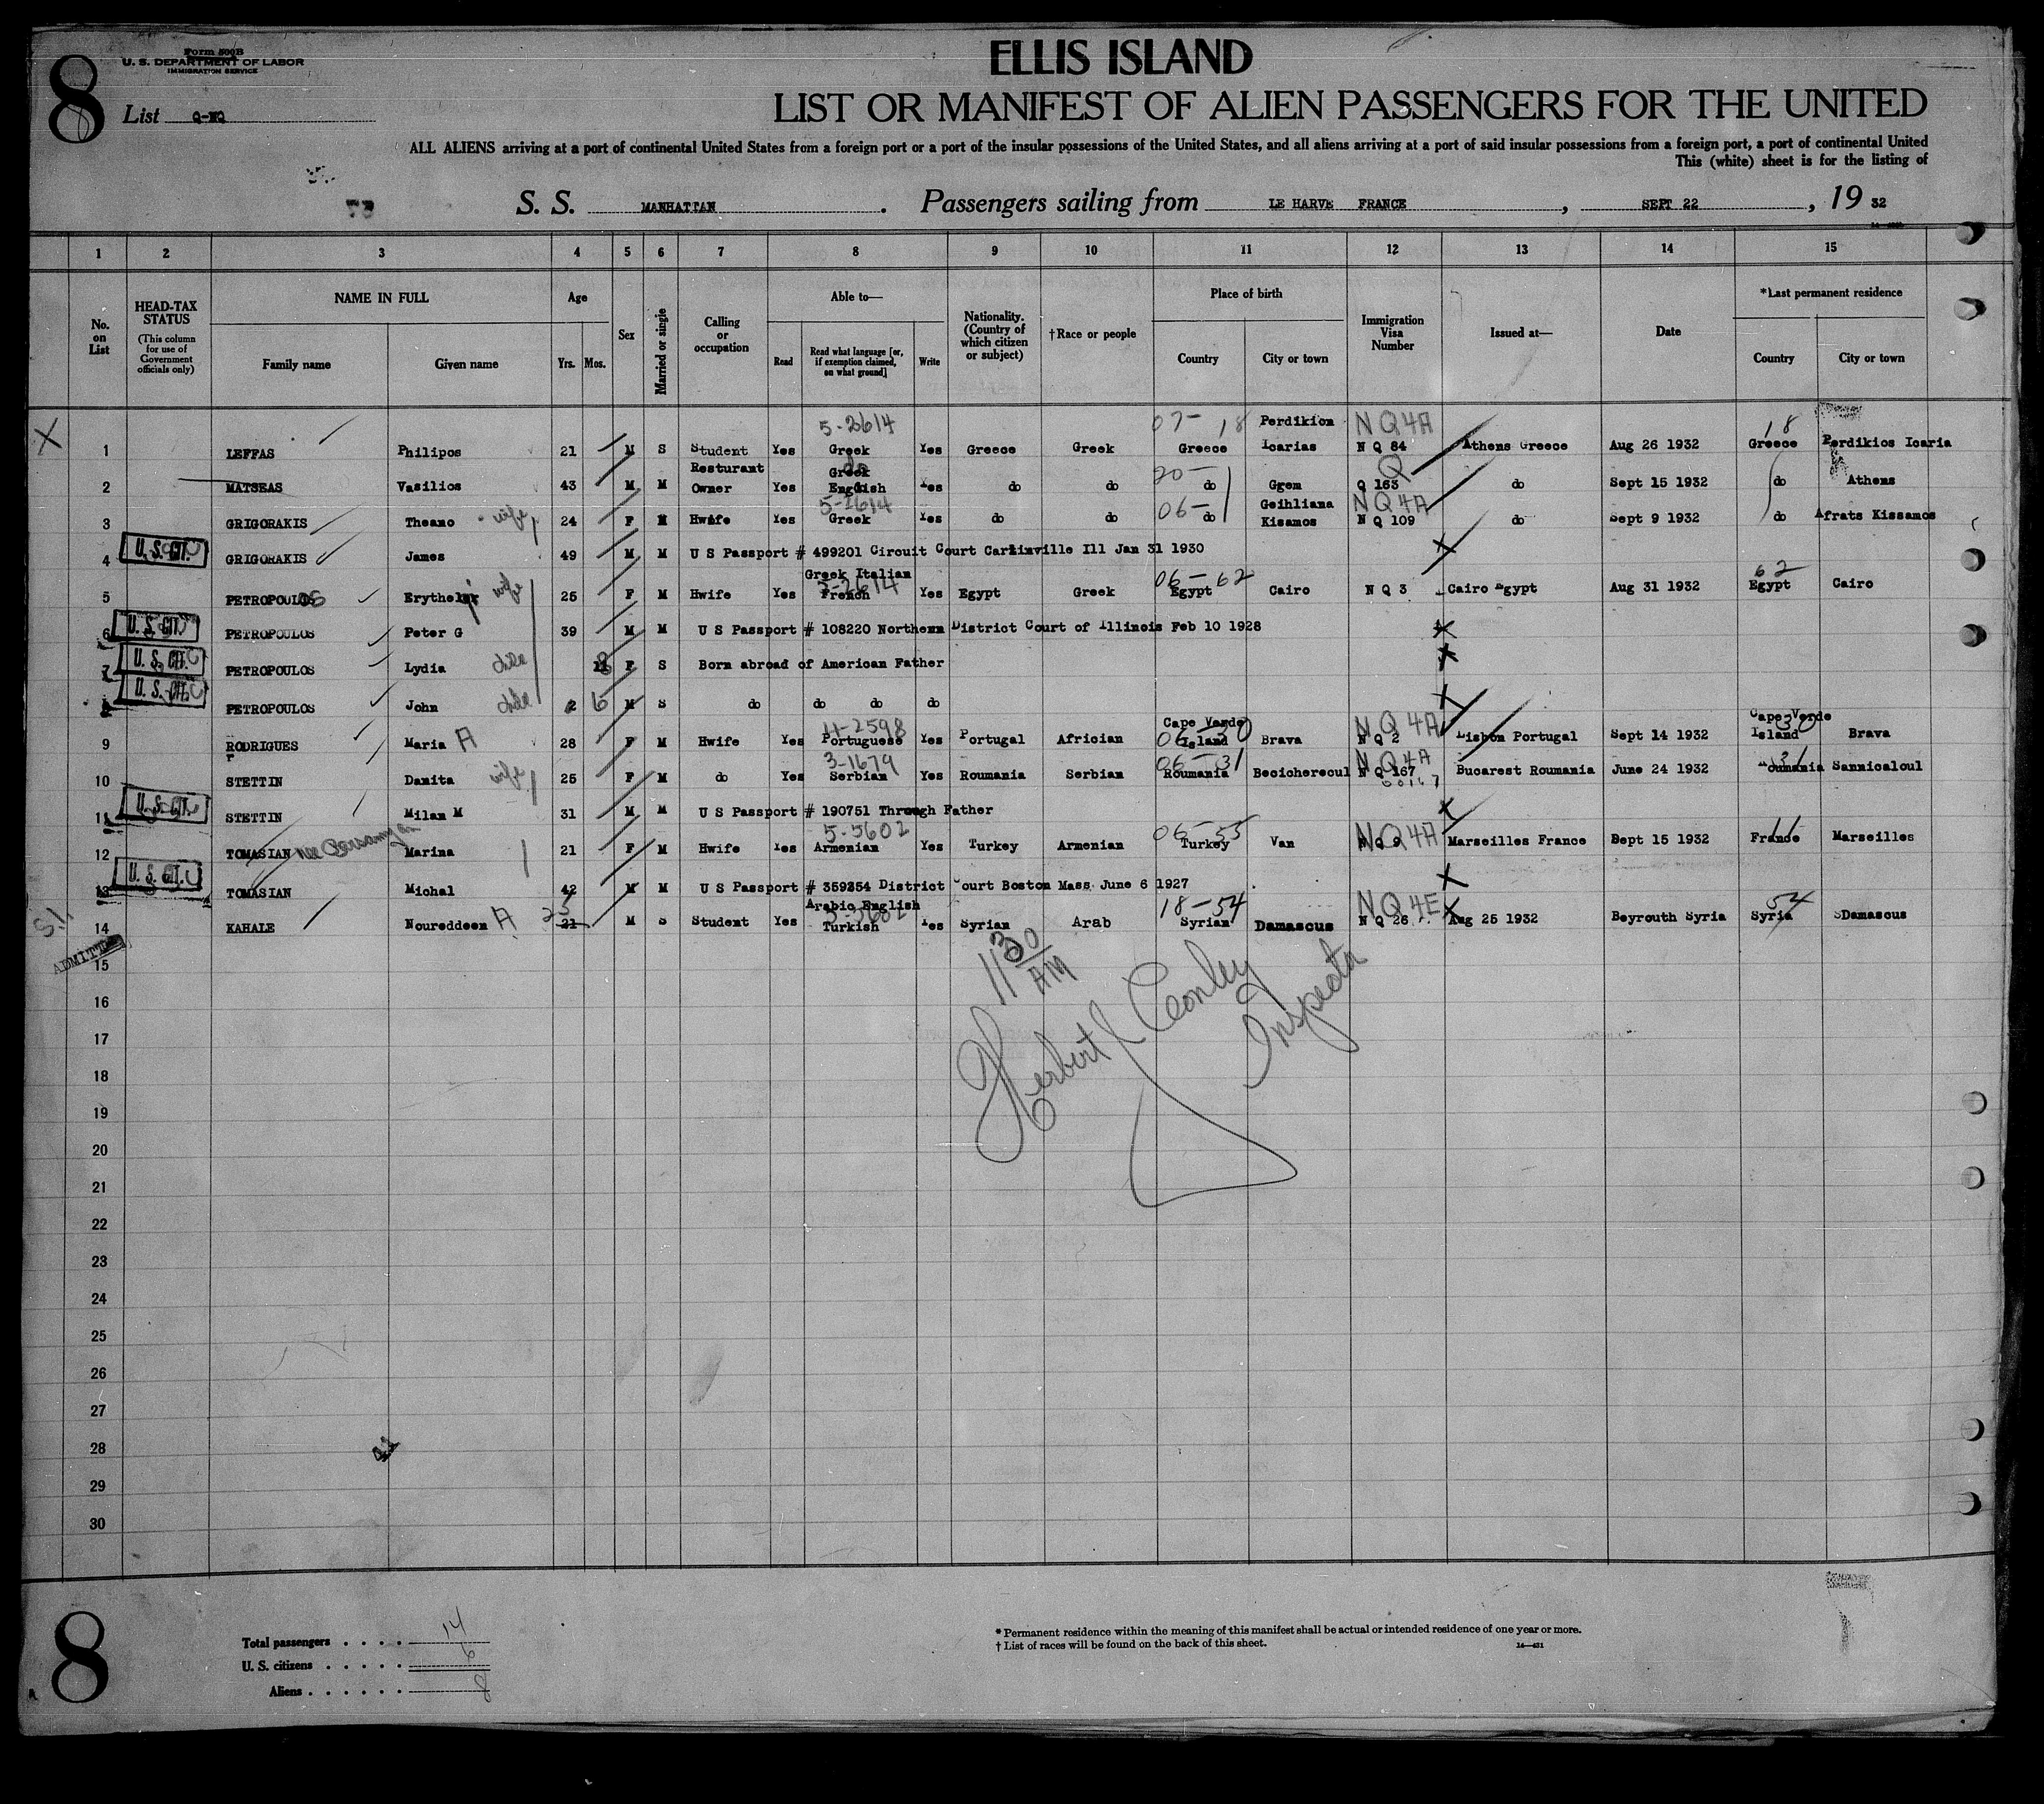 8
Form 500B
U. S. DEPARTMENT OF LABOR
IMMIGRATION SERVICE
List Q-NQ
ELLIS ISLAND
LIST OR MANIFEST OF ALIEN PASSENGERS FOR THE UNITED
ALL ALIENS arriving at a port of continental United States from a foreign port or a port of the insular possessions of the United States, and all aliens arriving at a port of said insular possessions from a foreign port, a port of continental United
This (white) sheet is for the listing of
S. S. MANHATTAN . Passengers sailing from LE HARVE FRANCE , SEPT 22 , 19 32
1 2 3 4 5 6 7 8 9 10 11 12 13 14 15
No. on List
HEAD-TAX STATUS
(This column for use of Government officials only)
NAME IN FULL
Family name Given name
Age
Yrs. Mos.
Sex
Married or single
Calling or occupation
Able to—
Read
Read what language [or, if exemption claimed, on what ground]
Write
Nationality. (Country of which citizen or subject)
†Race or people
Place of birth
Country City or town
Immigration Visa Number
Issued at—
Date
*Last permanent residence
Country City or town
5-2614 07- 18 Perdikion NQ4A 18
X 1 LEFFAS Philipos 21 M S Student Yes Greek Yes Greece Greek Greece Icarias N Q 84 Athens Greece Aug 26 1932 Greece Perdikios Icaria
Resturant Greek 20- Q
2 MATSEAS Vasilios 43 M M Owner Yes English Yes do do do Ggem Q 163 do Sept 15 1932 do Athens
wife 5-2614 06- Geihliana NQ4A
3 GRIGORAKIS Theano 24 F M Hwife Yes Greek Yes do do do Kisamos N Q 109 do Sept 9 1932 do Afrats Kissamos
U. S. CIT.
4 GRIGORAKIS James 49 M M U S Passport # 499201 Circuit Court Carlinville Ill Jan 31 1930 X
wife Greek Italian 5-2614 06-62 62
5 PETROPOULOS Erythelar 25 F M Hwife Yes French Yes Egypt Greek Egypt Cairo N Q 3 Cairo Egypt Aug 31 1932 Egypt Cairo
U. S. CIT.
6 PETROPOULOS Peter G 39 M M U S Passport # 108220 Northern District Court of Illinois Feb 10 1928 X
U. S. CIT.
7 PETROPOULOS Lydia F S Born abroad of American Father X
U. S. CIT.
8 PETROPOULOS John 2 6 M S do do do do X
4-2598 Cape Verde NQ4A Cape Verde
9 RODRIGUES Maria A 28 F M Hwife Yes Portuguese Yes Portugal Africian Island Brava N Q 2 Lisbon Portugal Sept 14 1932 Island Brava
wife 3-1679 06-31 NQ4A 31
10 STETTIN Damita 25 F M do Yes Serbian Yes Roumania Serbian Roumania Becicherecul N Q 167 Bucarest Roumania June 24 1932 Roumania Sannicaloul
U. S. CIT.
11 STETTIN Milan M 31 M M U S Passport # 190751 Through Father X
nee 5-5602 06-55 NQ4A 11
12 TOMASIAN Marina 21 F M Hwife Yes Armenian Yes Turkey Armenian Turkey Van N Q 9 Marseilles France Sept 15 1932 France Marseilles
U. S. CIT.
13 TOMASIAN Michal 42 M M U S Passport # 359254 District Court Boston Mass June 6 1927 X
S.I. 23 Arabic English 5-5602 18-54 NQ4E 54
14 KAHALE Noureddeen A 21 M S Student Yes Turkish Yes Syrian Arab Syrian Damascus N Q 26 Aug 25 1932 Beyrouth Syria Syria Damascus
ADMITTED
15
16
17
18
19
20
21
22
23
24
25
26
27
28
29
30
11 30 AM
Herbert J Conley
Inspector
8
Total passengers . . . . 14
U. S. citizens . . . . . 6
Aliens . . . . . . 8
* Permanent residence within the meaning of this manifest shall be actual or intended residence of one year or more.
† List of races will be found on the back of this sheet.